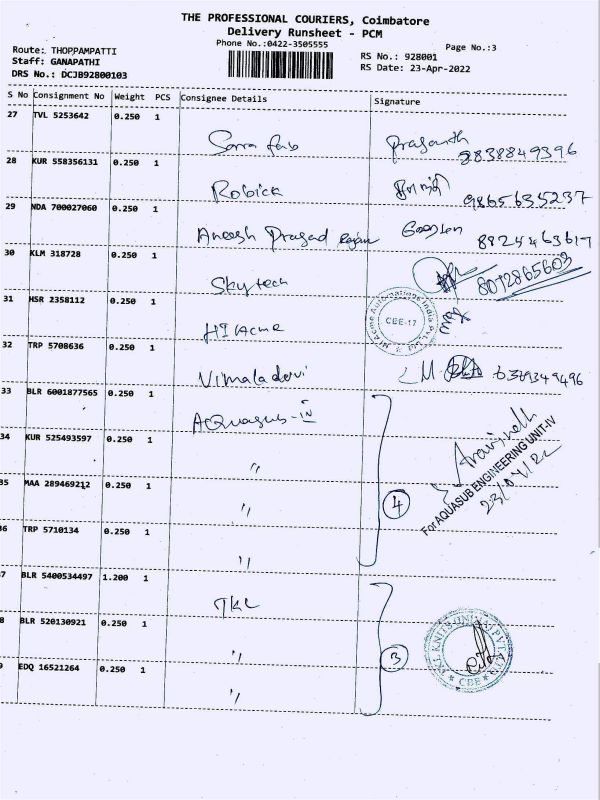 THE PROFESSIONAL COURIERS, Coimbatore
Delivery Runsheet - PCM
Phone No.:0422-3505555
Page No.:3
Route: THOPPAMPATTI
RS No.: 928001
Staff: GANAPATHI
RS Date: 23-Apr-2022
DRS No.: DCJB92800103
S No Consignment No Weight PCS Consignee Details Signature
27 TVL 5253642 0.250 1
Prasanth
9838849396
28 KUR 558356131 0.250 1
Robick
9865635237
29 NDA 700027060 0.250 1
Aneesh Prasad Rajan
8924463617
30 KLM 318728 0.250 1
Sky tech 8072865603
31 HSR 2358112 0.250 1
CBE-17
HI Acme
32 TRP 5708636 0.250 1
Vimaladevi M 6379349496
33 BLR 6001877565 0.250 1
Aquasub-IV
34 KUR 525493597 0.250 1
"
Aravinth
For AQUASUB ENGINEERING UNIT-IV
23/04/22
35 MAA 289469212 0.250 1
"
4
36 TRP 5710134 0.250 1
"
7 BLR 5400534497 1.200 1
TKL
8 BLR 520130921 0.250 1
"
3
CBE
9 EDQ 16521264 0.250 1
"